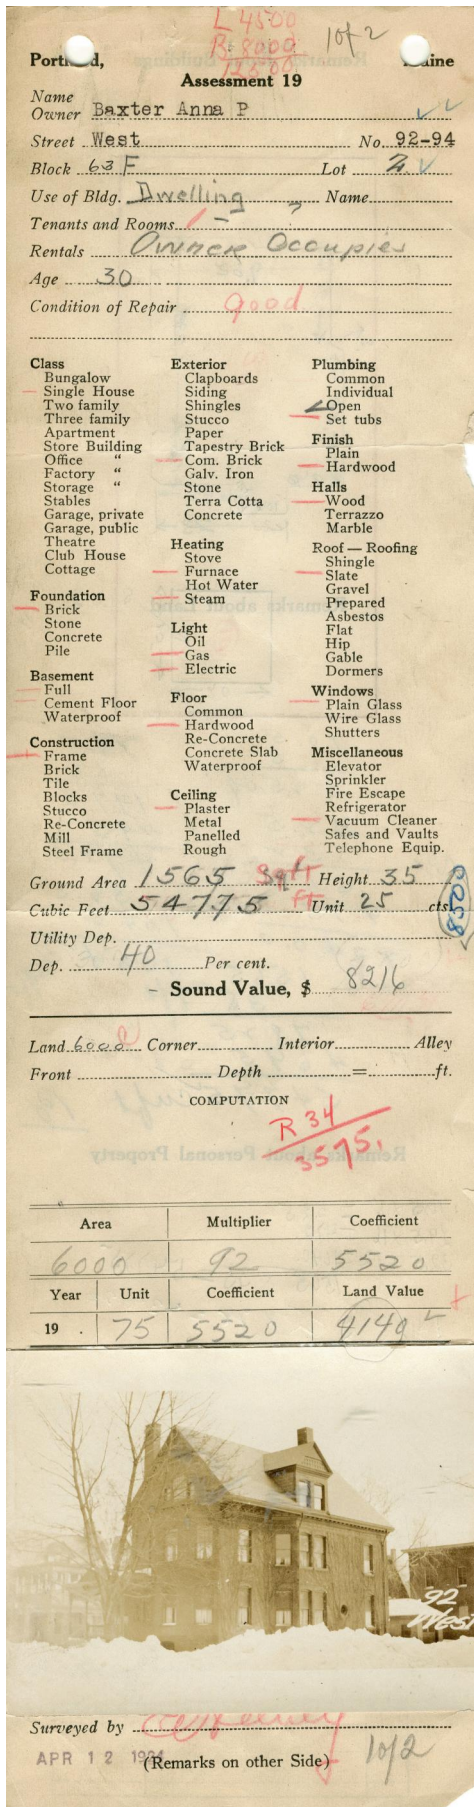 L 4500
B 8000
12500
1 of 2
Portland, Maine
Assessment 19
Name
Owner Baxter Anna P
Street West No. 92-94
Block 63 F Lot 2
Use of Bldg. Dwelling Name
Tenants and Rooms 1 - ?
Rentals Owner Occupies
Age 30
Condition of Repair good
Class
Bungalow
Single House
Two family
Three family
Apartment
Store Building
Office "
Factory "
Storage "
Stables
Garage, private
Garage, public
Theatre
Club House
Cottage
Foundation
Brick
Stone
Concrete
Pile
Basement
Full
Cement Floor
Waterproof
Construction
Frame
Brick
Tile
Blocks
Stucco
Re-Concrete
Mill
Steel Frame
Exterior
Clapboards
Siding
Shingles
Stucco
Paper
Tapestry Brick
Com. Brick
Galv. Iron
Stone
Terra Cotta
Concrete
Heating
Stove
Furnace
Hot Water
Steam
Light
Oil
Gas
Electric
Floor
Common
Hardwood
Re-Concrete
Concrete Slab
Waterproof
Ceiling
Plaster
Metal
Panelled
Rough
Plumbing
Common
Individual
Open
Set tubs
Finish
Plain
Hardwood
Halls
Wood
Terrazzo
Marble
Roof — Roofing
Shingle
Slate
Gravel
Prepared
Asbestos
Flat
Hip
Gable
Dormers
Windows
Plain Glass
Wire Glass
Shutters
Miscellaneous
Elevator
Sprinkler
Fire Escape
Refrigerator
Vacuum Cleaner
Safes and Vaults
Telephone Equip.
Ground Area 1565 Sq ft Height 35
Cubic Feet 54775 ft Unit 25 cts.
8500
Utility Dep.
Dep. 40 Per cent.
- Sound Value, $ 8216
Land 6000 Corner Interior Alley
Front Depth = ft.
COMPUTATION
R 34
3575.
Area Multiplier Coefficient
6000 92 5520
Year Unit Coefficient Land Value
19 . 75 5520 4140
92
West
Surveyed by
APR 12 1924
(Remarks on other Side)
1 of 2